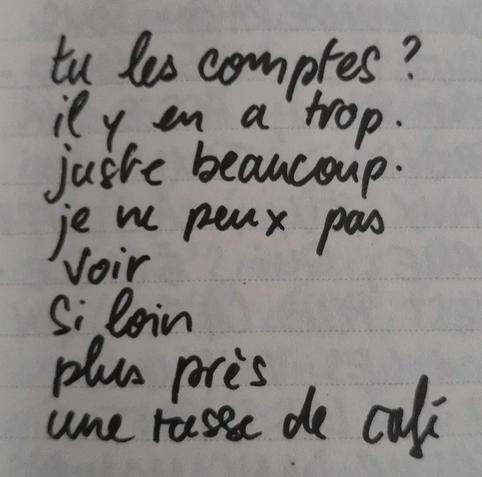 tu les comptes ?
il y en a trop.
juste beaucoup.
je ne peux pas
voir
si loin
plus près
une tasse de café